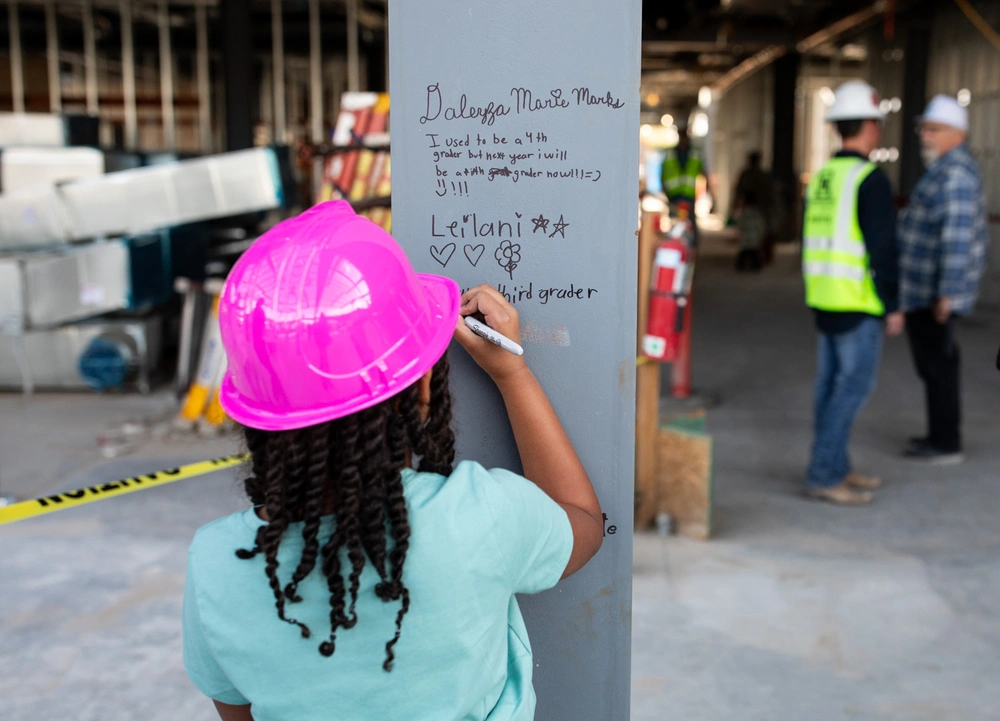 Daleyza Marie Marks
I used to be a 4th
grader but next year i will
be a fifth grader now!!!=)
!!!
Leilani
third grader
CAUTION